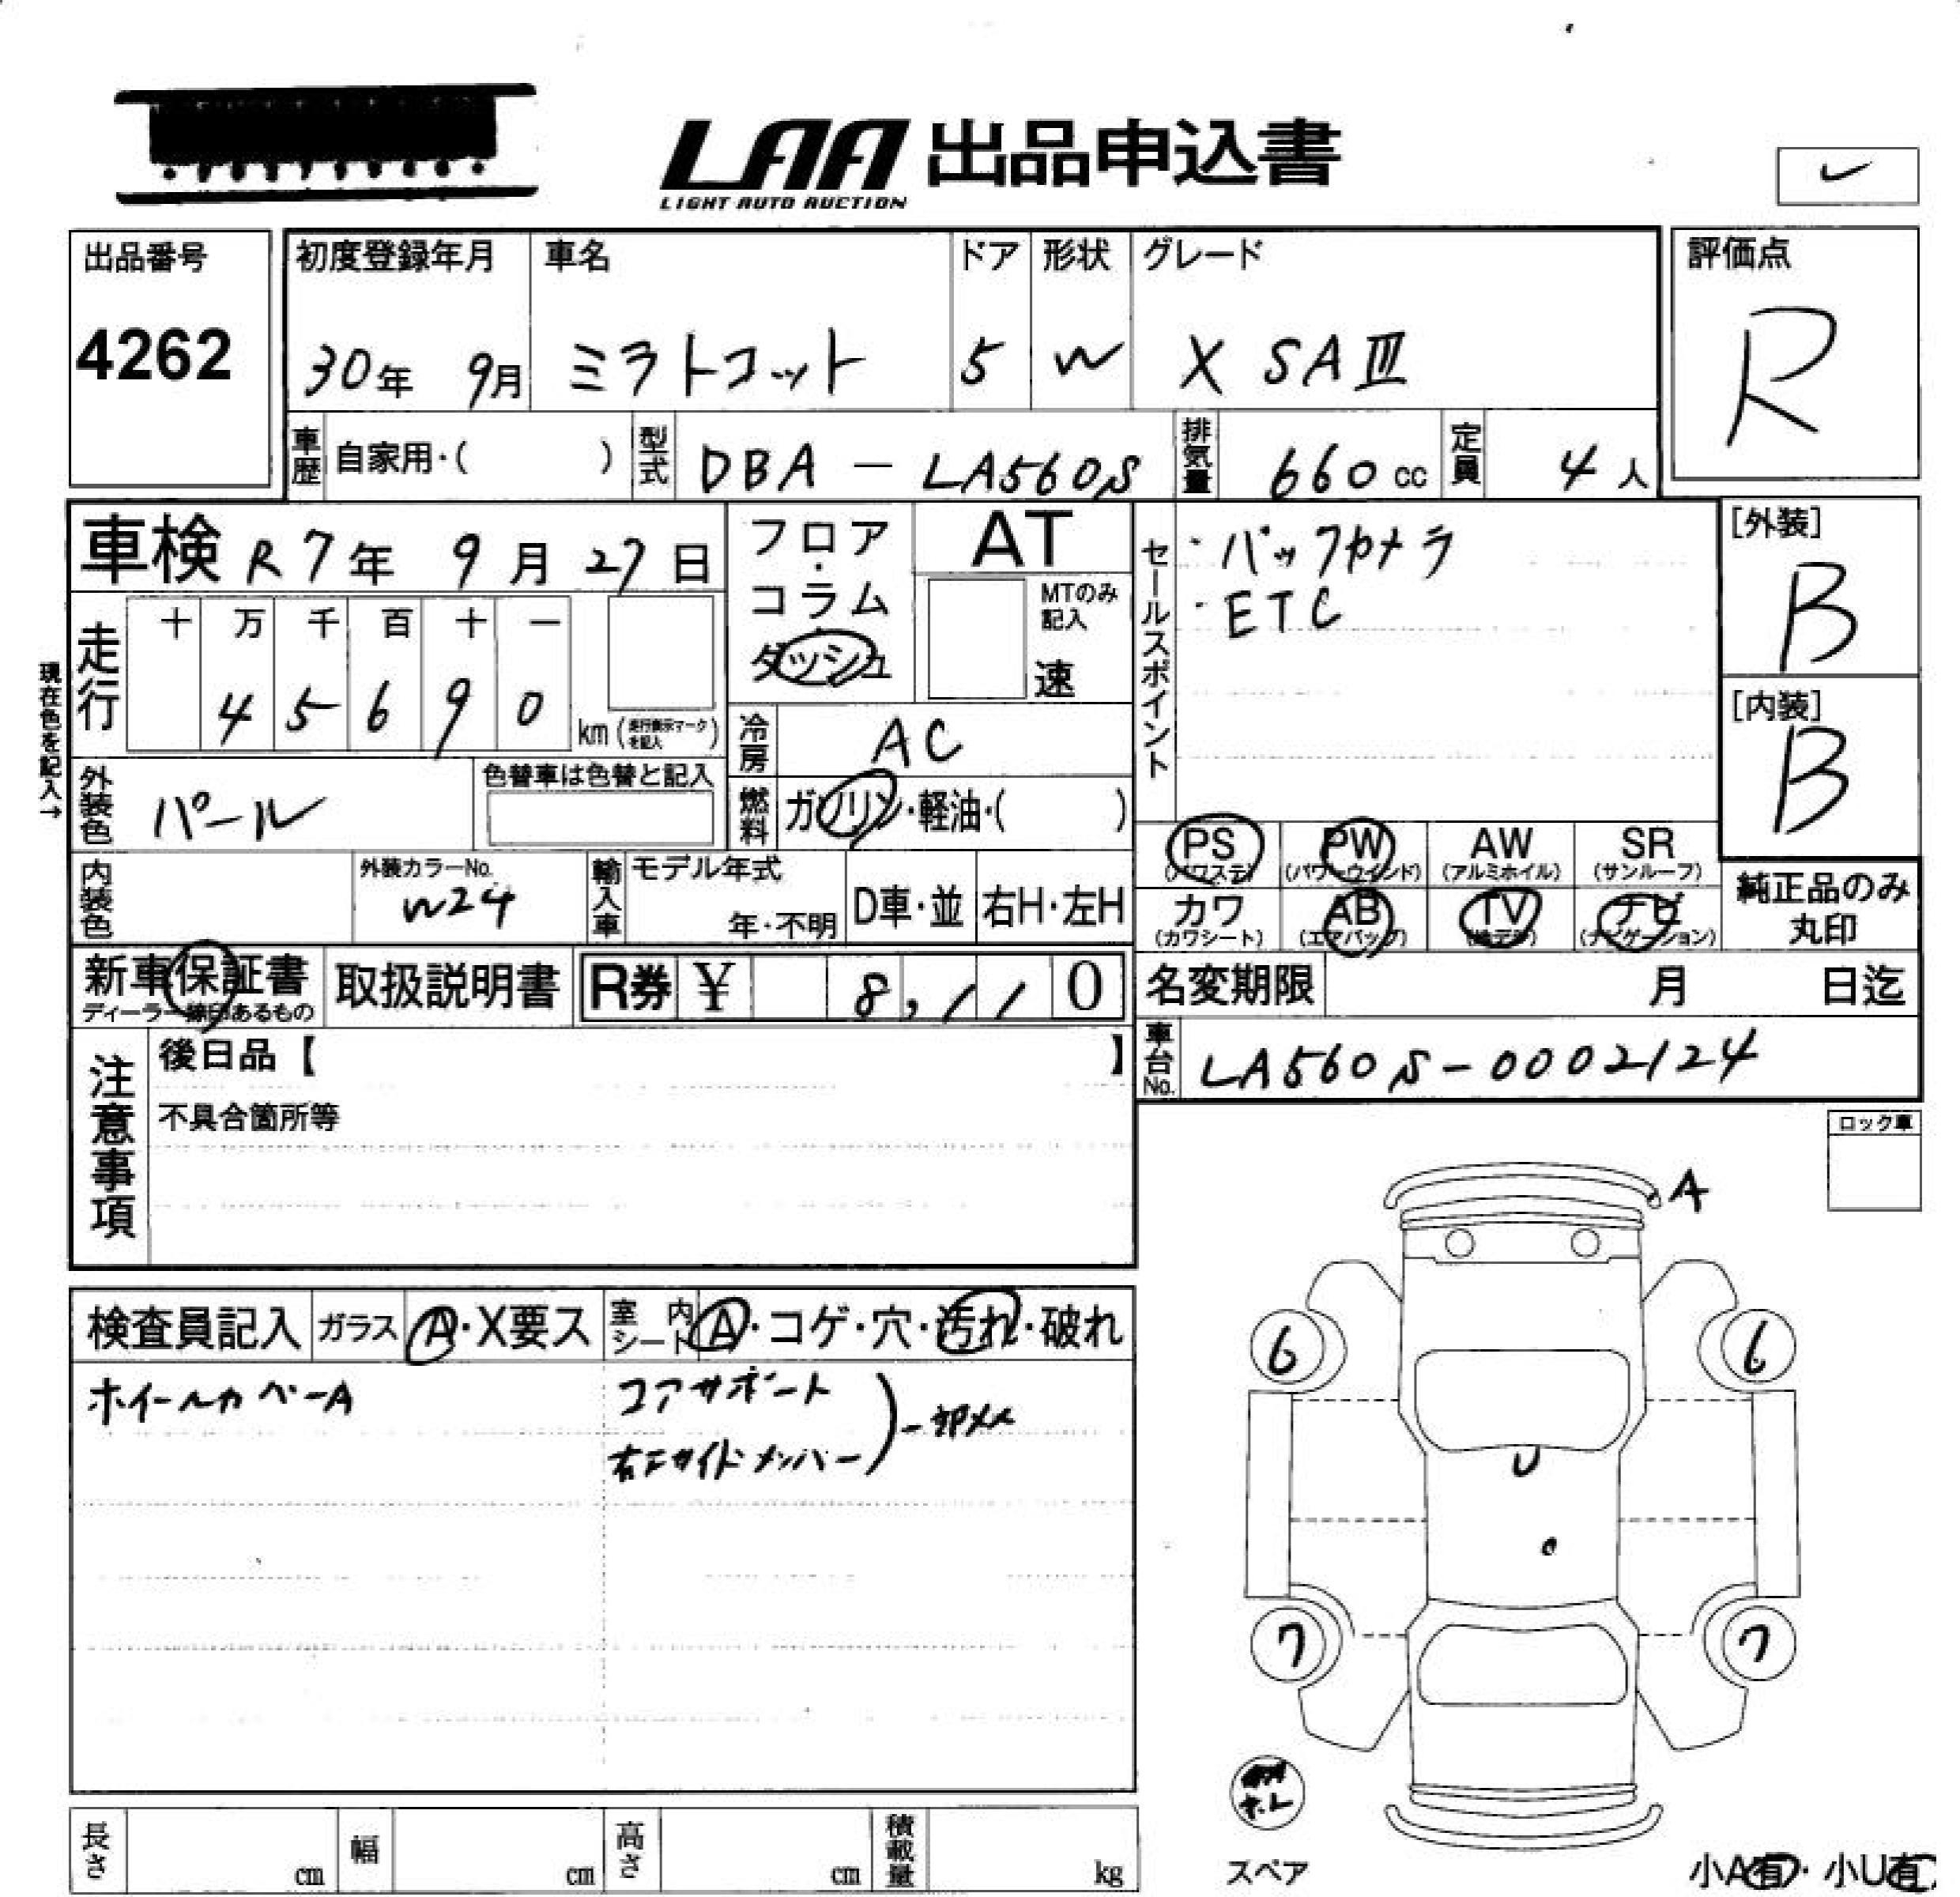 LAA 出品申込書
LIGHT AUTO AUCTION
出品番号
4262
初度登録年月
30年 9月
車名
ミラトコット
ドア
5
形状
W
グレード
X SAIII
評価点
R
車歴 自家用・( )
型式 DBA - LA560S
排気量 660 cc
定員 4 人
車検 R7年 9月 27日
フロア・コラム・ダッシュ
AT
MTのみ記入
速
セールスポイント
・バックカメラ
・ETC
[外装]
B
[内装]
B
現在色を記入→
走行
十 万 千 百 十 一
4 5 6 9 0
km (走行表示マークを記入)
冷房 AC
外装色 パール
色替車は色替と記入
燃料 ガソリン・軽油・( )
内装色
外装カラーNo.
W24
輸入車
モデル年式
年・不明
D車・並
右H・左H
PS (パワステ)
PW (パワーウインド)
AW (アルミホイル)
SR (サンルーフ)
カワ (カワシート)
AB (エアバッグ)
TV (地デジ)
ナビ (ナビゲーション)
純正品のみ
丸印
新車保証書
ディーラー線印あるもの
取扱説明書
R券 ¥ 8,110
名変期限 月 日迄
車台No. LA560S-0002124
注意事項
後日品【 】
不具合箇所等
ロック車
A
検査員記入
ガラス A・X要ス
室内シート A・コゲ・穴・汚れ・破れ
ホイールカバーA
コアサポート
右Fサイドメンバー
6 6
U
7 7
スペア
小A有・小U有
長さ cm
幅 cm
高さ cm
積載量 kg